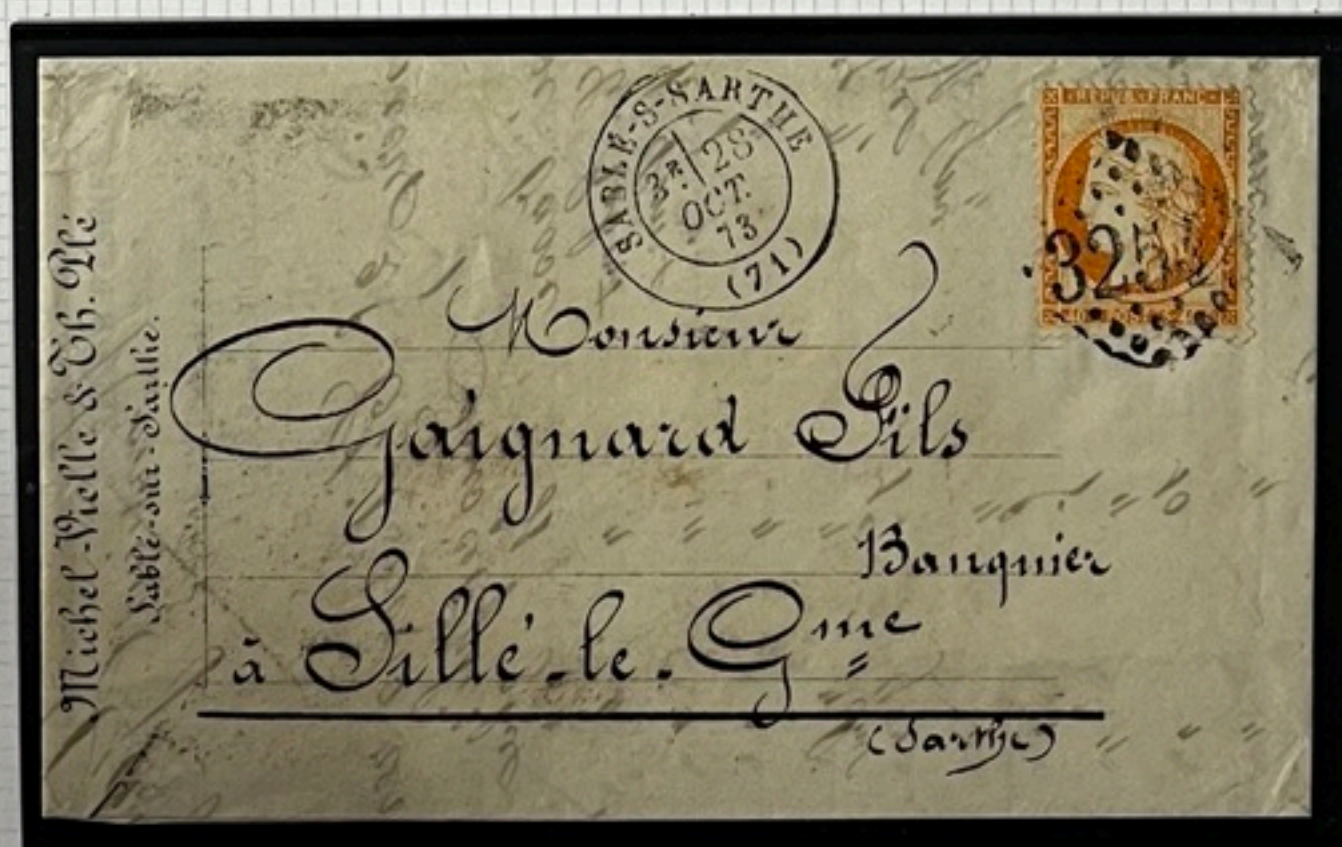 Michel-Vielle & Th. Plé
Sablé-sur-Sarthe.
SABLÉ-S-SARTHE
3E 28
OCT.
73
(71)
REPUB. FRANC.
325
Monsieur
Gaignard Fils
Banquier
à Sillé-le-Gme
(Sarthe)